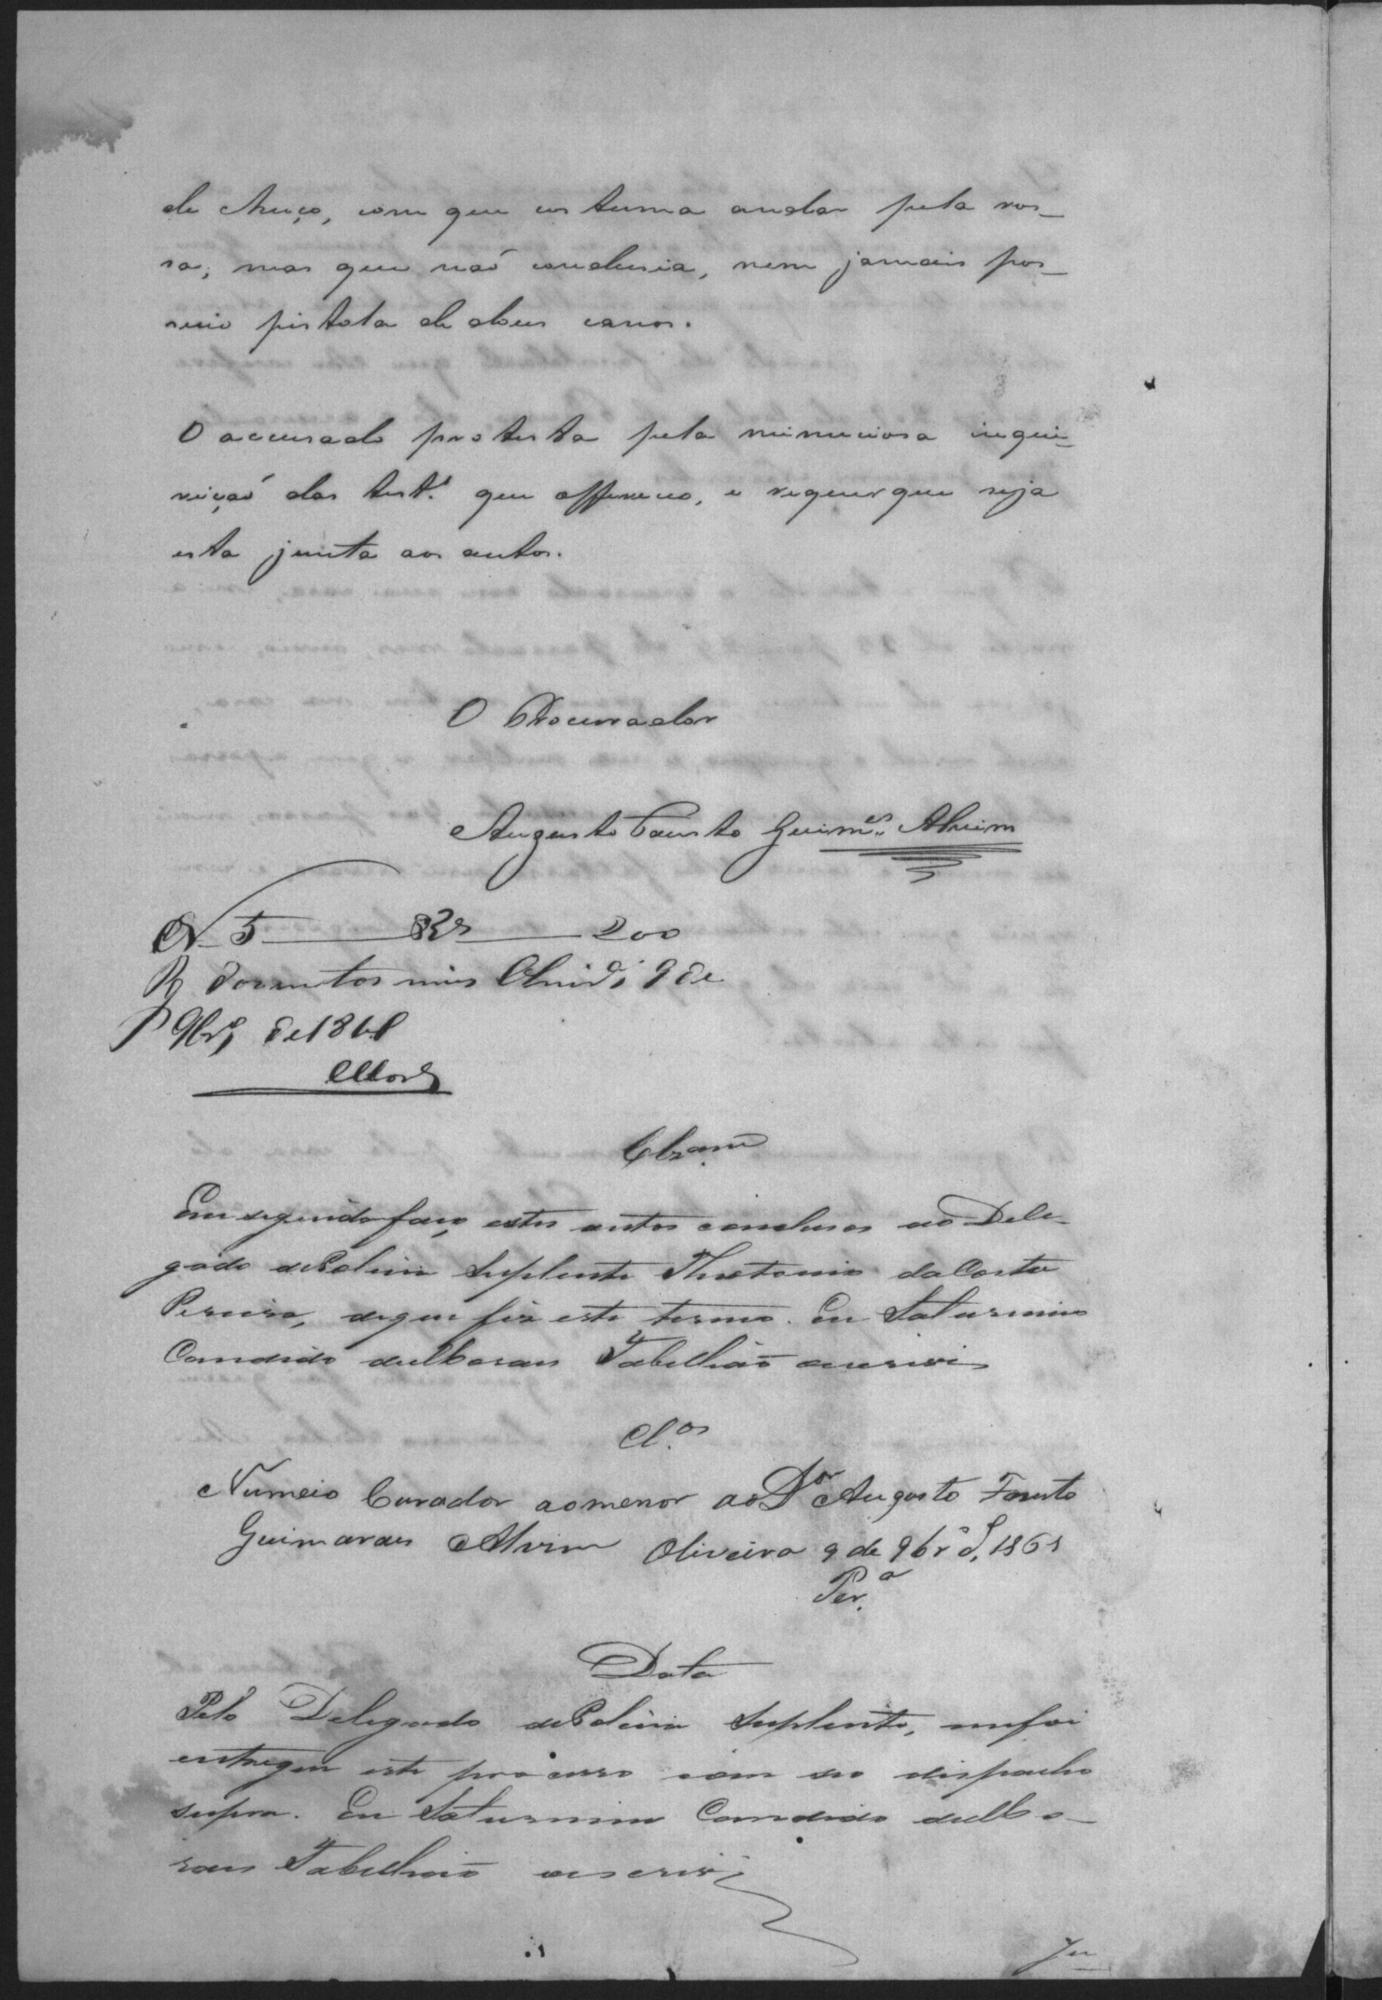 de chuço, com que costuma andar pela ros-
sa; mas que naõ condusia, nem jamais pos-
suio pistola de dous canos.
O accusado protesta pela minuciosa inqui-
riçaõ das test.ˢ que offereceo, e requer que seja
esta junta aos autos.
O Procurador
Augusto Fausto Guim.ᵉˢ Alvim
N 5 — R.ˢ — 200
P dozentos reis Oliv.ᵃ 9 de
9br.º de 1861
Cl.ᵃᵐ
Em seguida faço estes autos conclusos ao Dele-
gado de Policia Suplente Theotonio da Costa
Pereira, de que fiz este termo. Eu Saturnino
Candido de Moraes Tabelliaõ o escrivi
Cl.ᵒˢ
Numeio Curador ao menor ao D.ᵒʳ Augusto Fausto
Guimaraes Alvim Oliveira 9 de 9br.º d, 1861
Per.ᵃ
Data
Pelo Delegado de Policia Suplente, me foi
entregue este processo com seo despacho
supra. Eu Saturnino Candido de Mo-
raes Tabelliaõ o escrivi
Ju